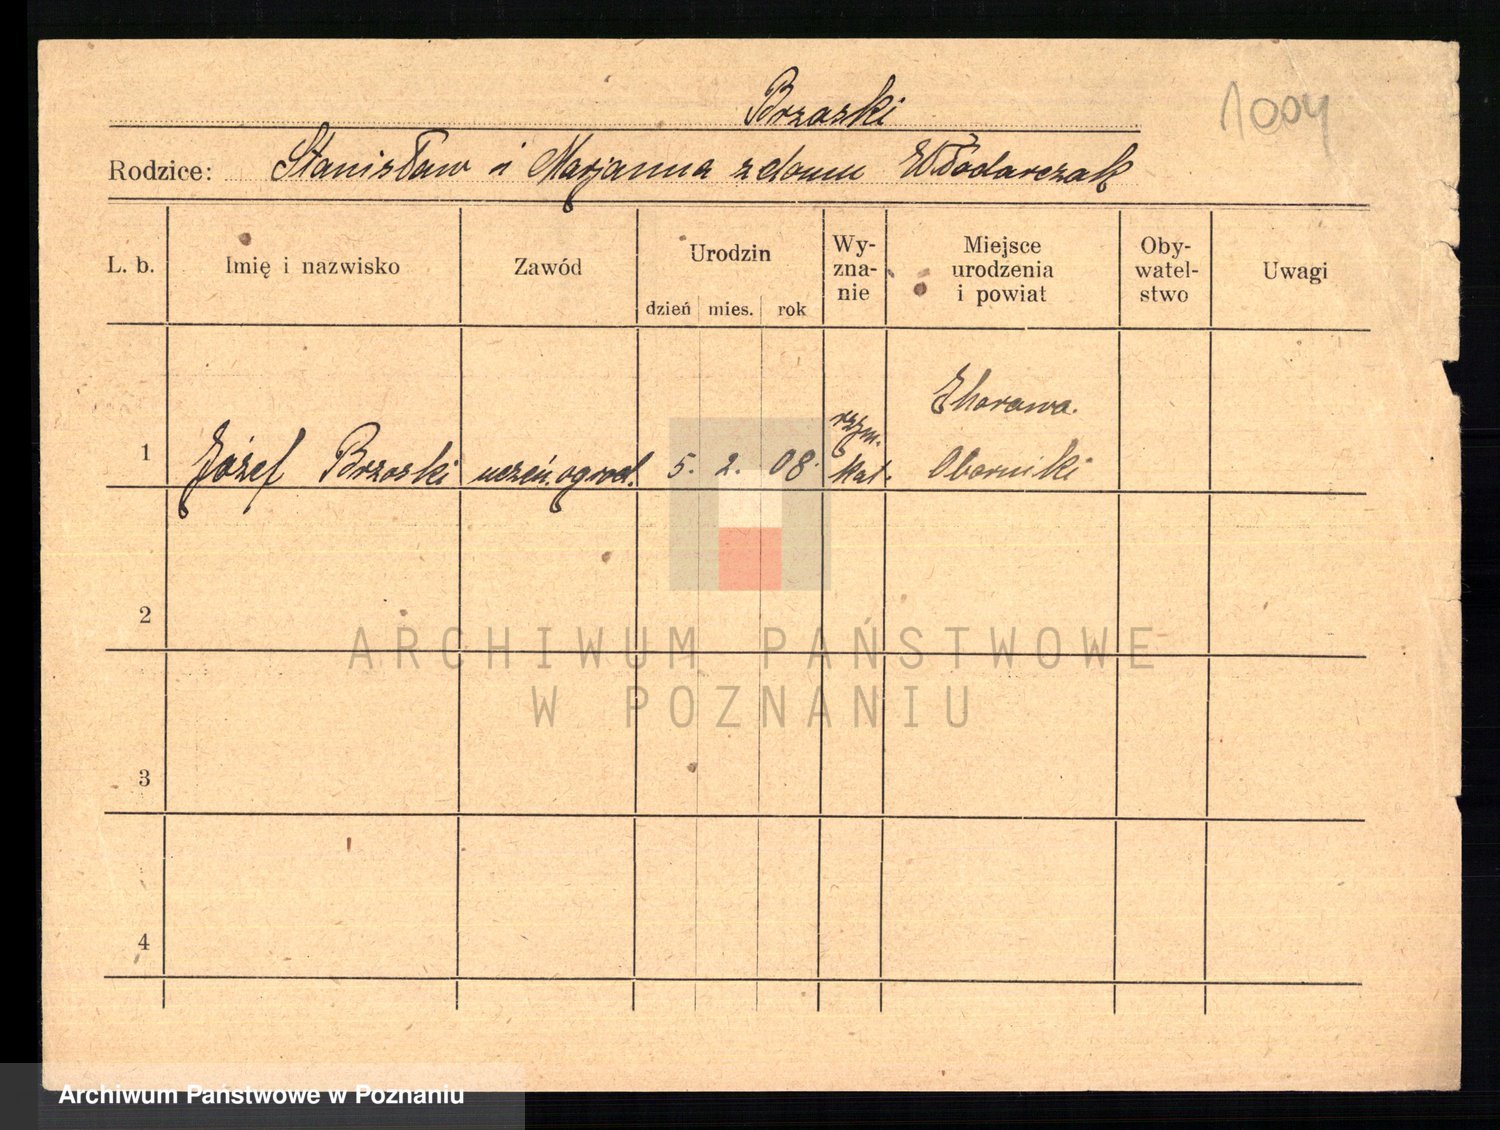 Brzoski
1004
Rodzice: Stanisław i Marjanna z domu Włodarczak
L. b.
Imię i nazwisko
Zawód
Urodzin
dzień mies. rok
Wy-
zna-
nie
Miejsce
urodzenia
i powiat
Oby-
watel-
stwo
Uwagi
1
Józef Brzoski
uczeń. ogrod.
5. 2. 08.
rzym.
kat.
Oborniki
2
3
4
ARCHIWUM PAŃSTWOWE
W POZNANIU
Archiwum Państwowe w Poznaniu